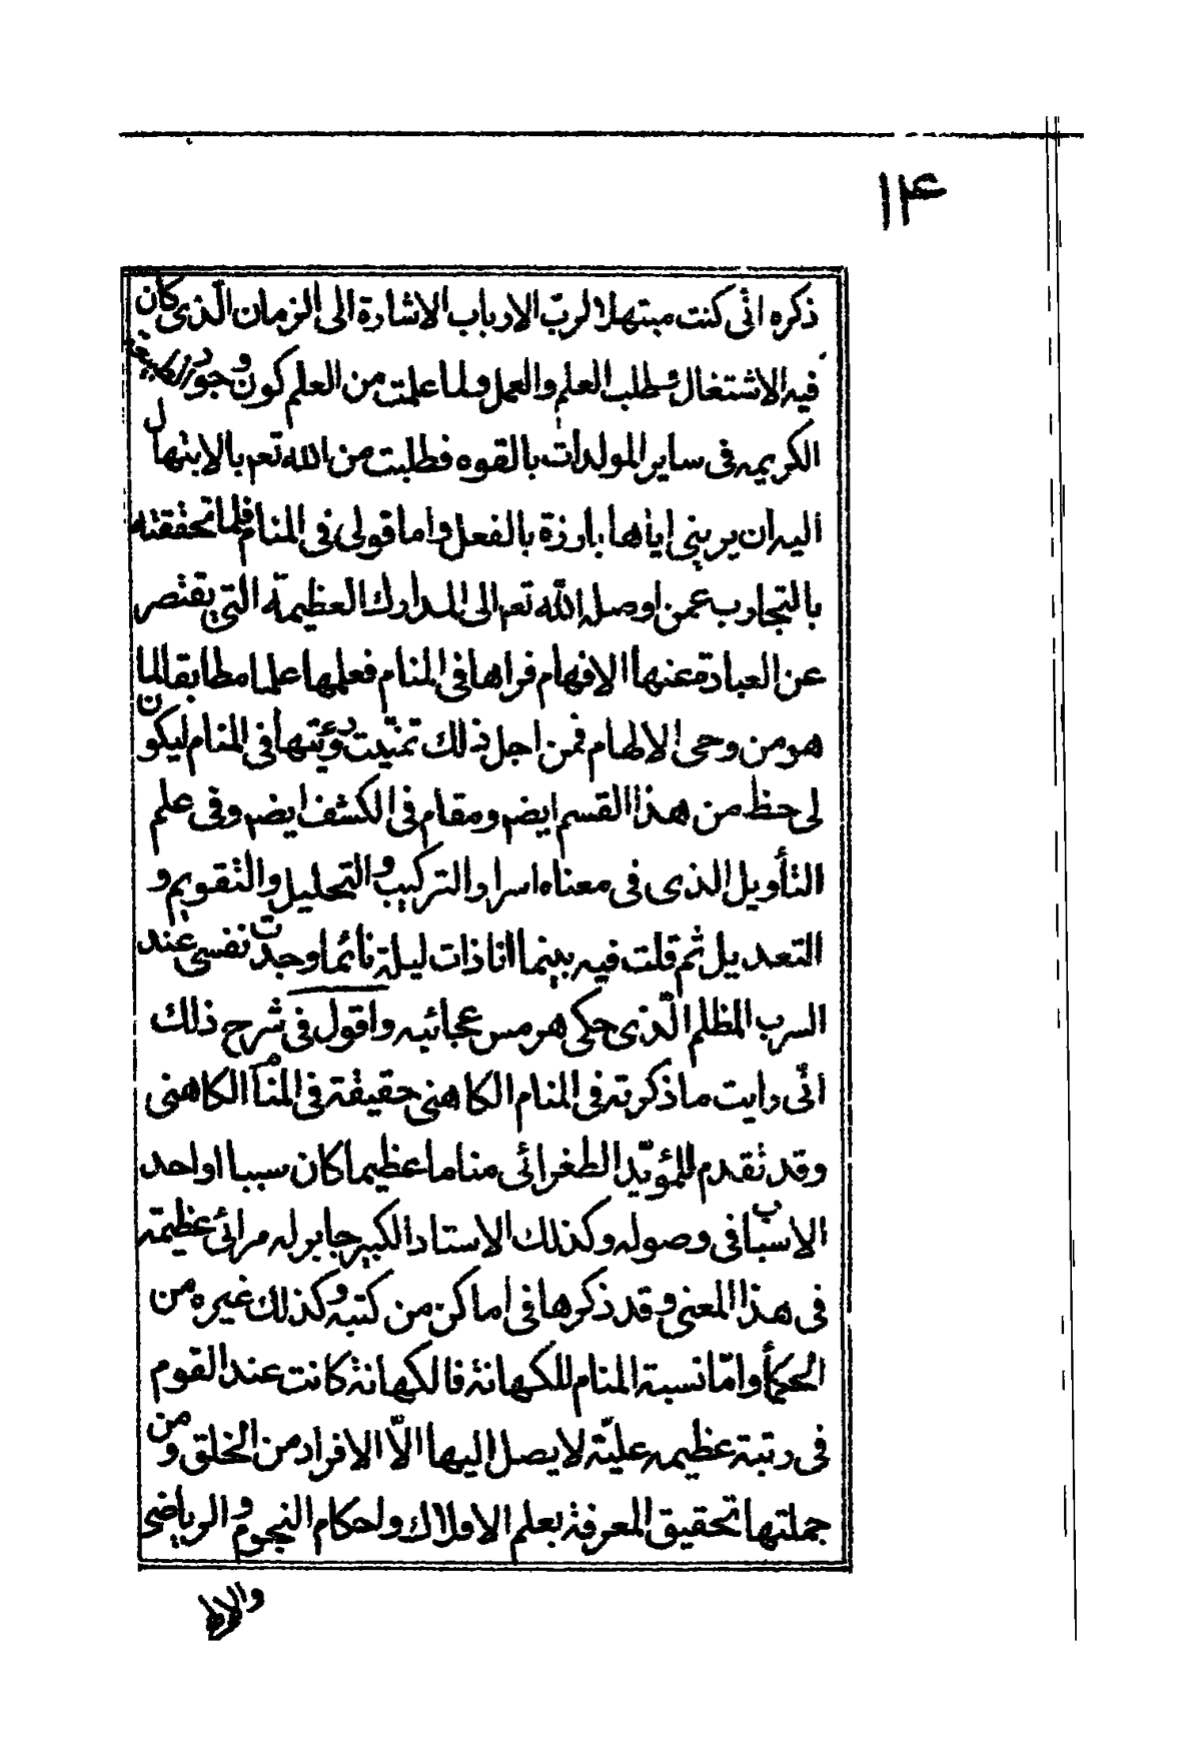 ١٤
ذكره انّى كنت مبتهلا لربّ الارباب الاشارة الى الزمان الّذى كان
فيه الاشتغال بطلب العلم والعمل ولما علمت من العلم كون وجود الطبيعة
الكريمه فى ساير المولدات بالقوه فطلبت من الله تعم بالابتهال
اليه ان يرينى اياها بارزة بالفعل واما قولى فى المنام فلما تحققته
بالتجارب عمن اوصله اللّه تعم الى المدارك العظيمة التى يقتصر
عن العبادة عنها الافهام فراها فى المنام فعلمها علما مطابقا لما
هو من وحى الالهام فمن اجل ذلك تمنّيت رؤيتها فى المنام ليكون
لى حظ من هذا القسم ايضم ومقام فى الكشف ايضم وفى علم
التأويل الذى فى معناه اسرار التركيب والتحليل والتقويم و
التعديل ثم قلت فيه بينما انا ذات ليلة نائما وجدت نفسى عند
السرب المظلم الّذى حكى هرمس عجائبه واقول فى شرح ذلك
انّى رايت ما ذكرته فى المنام الكاهنى حقيقة فى المنام الكاهنى
وقد تقدم للمؤيّد الطغرائى مناما عظيما كان سببا اواحد
الاسباب فى وصوله وكذلك الاستاد الكبير جابر له مرائى عظيمة
فى هذا المعنى وقد ذكرها فى اماكن من كتبه وكذلك غيره من
الحكمأ وامّا نسبة المنام للكهانة فالكهانة كانت عند القوم
فى رتبة عظيمه عليّة لا يصل اليها الاّ الافراد من الخلق ومن
جملتها تحقيق المعرفة بعلم الافلاك واحكام النجوم والرياضى